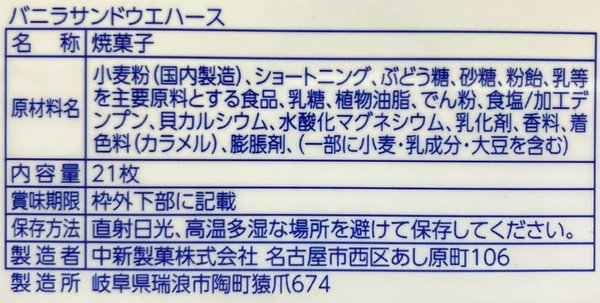 バニラサンドウエハース
名称 焼菓子
原材料名 小麦粉(国内製造)、ショートニング、ぶどう糖、砂糖、粉飴、乳等
を主要原料とする食品、乳糖、植物油脂、でん粉、食塩/加工デ
ンプン、貝カルシウム、水酸化マグネシウム、乳化剤、香料、着
色料(カラメル)、膨脹剤、(一部に小麦・乳成分・大豆を含む)
内容量 21枚
賞味期限 枠外下部に記載
保存方法 直射日光、高温多湿な場所を避けて保存してください。
製造者 中新製菓株式会社 名古屋市西区あし原町106
製造所 岐阜県瑞浪市陶町猿爪674